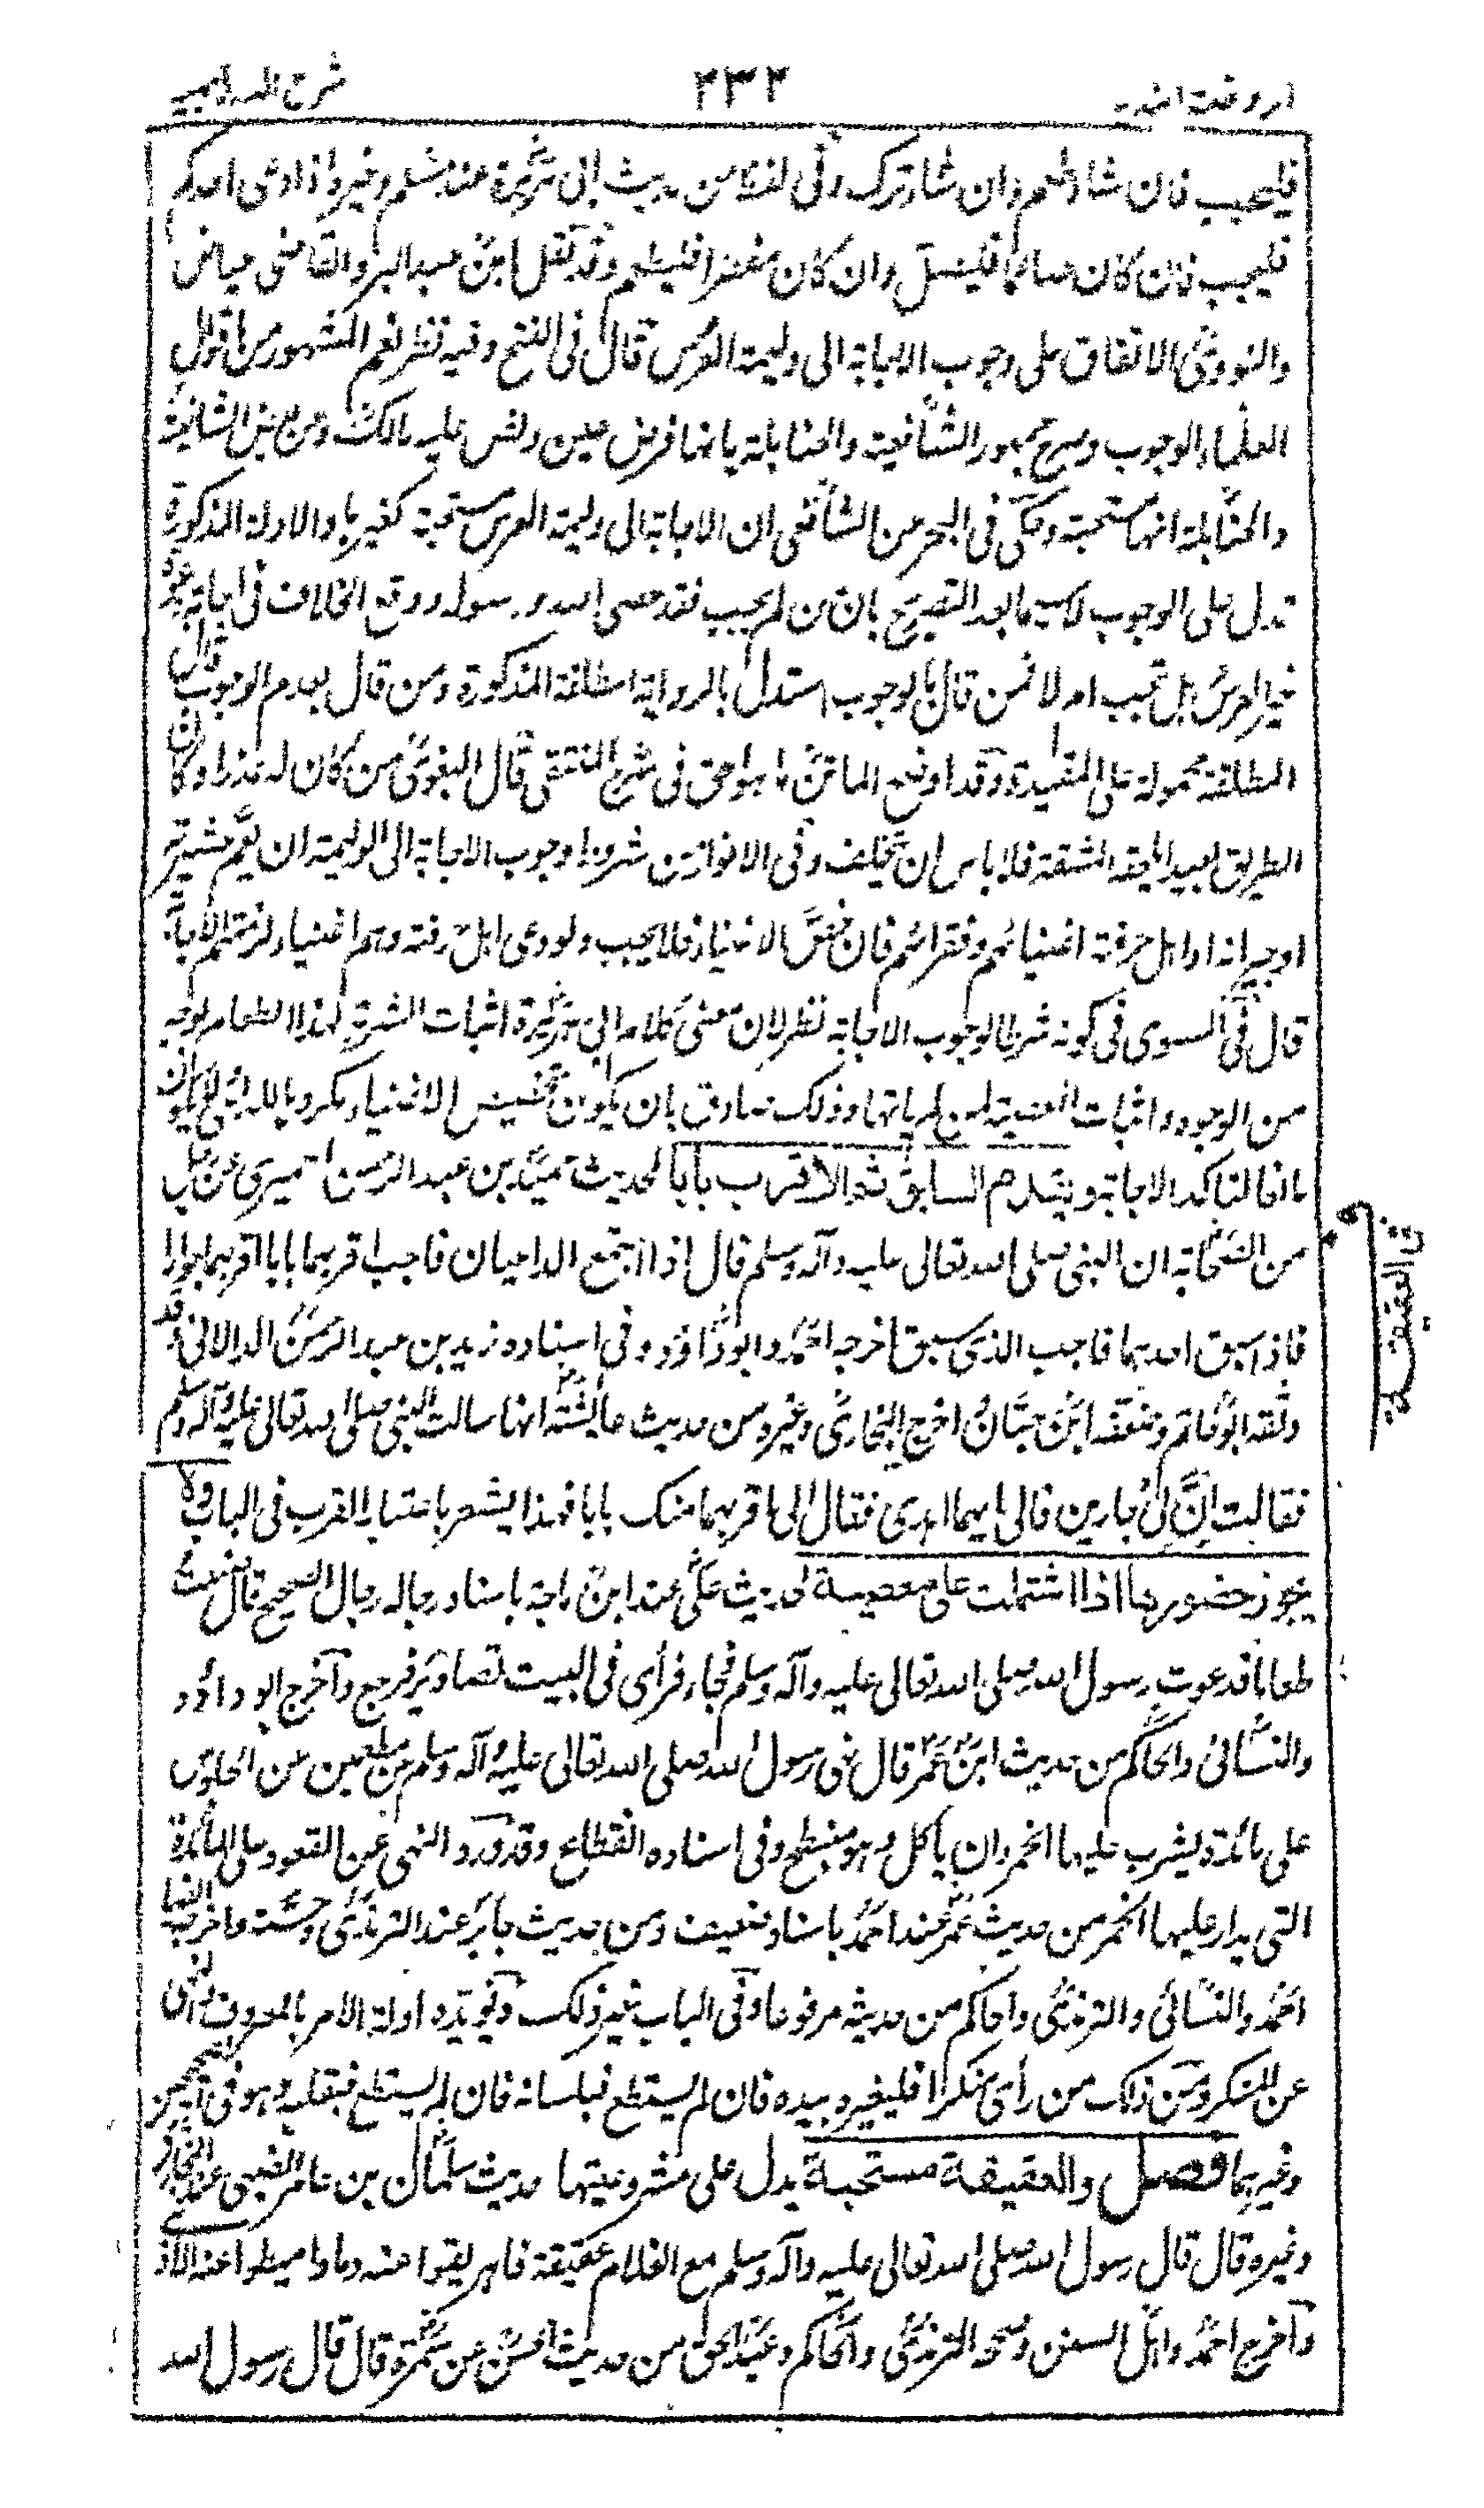 الروضة الندية
٢٣٢
شرح الدرر البهية
فليجب فان شاء طعم وان شاء ترك وفي لفظ من حديث ابي هريرة عند مسلم وغيره اذا دعي احدكم
فليجب فان كان صائما فليصل وان كان مفطرا فليطعم وقد نقل ابن عبد البر والقاضي عياض
والنووي الاتفاق على وجوب الاجابة الى وليمة العرس قال في الفتح وفيه نظر نعم المشهور من اقوال
العلماء الوجوب وصرح جمهور الشافعية والحنابلة بانها فرض عين ونص عليه مالك وعن بعض الشافعية
والحنابلة انها مستحبة وحكى في البحر عن الشافعي ان الاجابة الى وليمة العرس مستحبة كغيرها والادلة المذكورة
تدل على الوجوب لا سيما بعد التصريح بان من لم يجب فقد عصى الله ورسوله ووقع الخلاف في اجابة دعوة
غير العرس هل تجب ام لا فمن قال بالوجوب استدل بالرواية المطلقة المذكورة ومن قال بعدم الوجوب قال
المطلقة محمولة على المقيدة وقد اوضح الماتن ما هو الحق في شرح المنتقى قال البغوي من كان له عذر او كان
الطريق بعيدا يلحقه المشقة فلا باس ان يتخلف وفي الانوار من شروط وجوب الاجابة الى الوليمة ان يعم عشيرته
او جيرانه او اهل حرفة اغنيائهم وفقرائهم فان خص الاغنياء فلا يجب ولو دعى اهل حرفته وهم اغنياء لزمتهم الاجابة
قال في المسوى في كونه شرطا لوجوب الاجابة نظر لان معنى كلام ابي هريرة اثبات الشرية لهذا الطعام بوجه
من الوجوه واثبات المعصية لمن لم ياتها وذلك صادق بان يكون تخصيص الاغنياء مكروها للداعي ولا يكون
مانعا لتاكد الاجابة ويقدم السابق ثم الاقرب بابا لحديث حميد بن عبد الرحمن الحميري عن رجل
من الصحابة ان النبي صلى الله تعالى عليه وآله وسلم قال اذا اجتمع الداعيان فاجب اقربهما بابا فاقربهما جوارا
فاذا سبق احدهما فاجب الذي سبق اخرجه احمد وابوداؤد وفي اسناده يزيد بن عبد الرحمن الدالاني وقد
وثقه ابوحاتم وضعفه ابن حبان اخرج البخاري وغيره من حديث عائشة انها سالت النبي صلى الله تعالى عليه وآله وسلم
فقالت ان لي جارين فالى ايهما اهدي فقال الى اقربهما منك بابا فهذا يشعر باعتبار القرب في الباب ولا
يجوز حضورها اذا اشتملت على معصية لحديث علي عند ابن ماجة باسناد رجاله رجال الصحيح قال صنعت
طعاما فدعوت رسول الله صلى الله تعالى عليه وآله وسلم فجاء فرأى في البيت تصاوير فرجع وآخرج ابو داؤد
والنسائي والحاكم من حديث ابن عمر قال نهى رسول الله صلى الله تعالى عليه وآله وسلم عن مطعمين عن الجلوس
على مائدة يشرب عليها الخمر وان ياكل وهو منبطح وفي اسناده انقطاع وقد ورد النهي عن القعود على المائدة
التي يدار عليها الخمر من حديث عمر عند احمد باسناد ضعيف ومن حديث جابر عند الترمذي وحسنه واخرجه ايضا
احمد والنسائي والترمذي والحاكم من حديثه مرفوعا وفي الباب غير ذلك ويؤيده ادلة الامر بالمعروف والنهي
عن المنكر ومن ذلك من رأى منكرا فليغيره بيده فان لم يستطع فبلسانه فان لم يستطع فبقلبه وهو في الصحيحين
وغيرهما فصل والعقيقة مستحبة يدل على مشروعيتها حديث سلمان بن عامر الضبي عند البخاري
وغيره قال قال رسول الله صلى الله تعالى عليه وآله وسلم مع الغلام عقيقة فاهريقوا عنه دما واميطوا عنه الاذى
وآخرج احمد واهل السنن وصححه الترمذي والحاكم وعبد الحق من حديث الحسن عن سمرة قال قال رسول الله
ف العقيقة